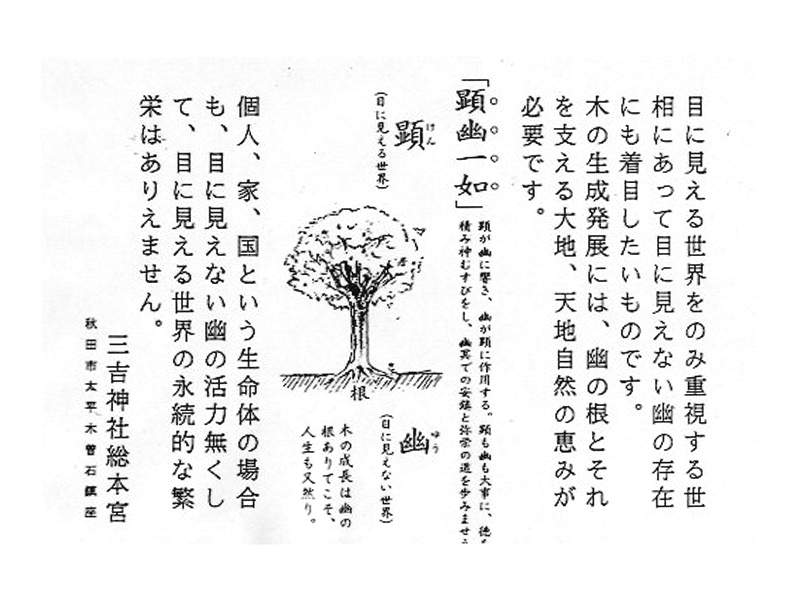 目に見える世界をのみ重視する世
相にあって目に見えない幽の存在
にも着目したいものです。
木の生成発展には、幽の根とそれ
を支える大地、天地自然の恵みが
必要です。
「顕幽一如」
顕が幽に響き、幽が顕に作用する。顕も幽も大事に、徳を
積み神むすびをし、幽冥での安鎮と弥栄の道を歩みませう
顕
けん
(目に見える世界)
根
幽
ゆう
(目に見えない世界)
木の成長は幽の
根ありてこそ、
人生も又然り。
個人、家、国という生命体の場合
も、目に見えない幽の活力無くし
て、目に見える世界の永続的な繁
栄はありえません。
三吉神社総本宮
秋田市太平木曽石鎮座